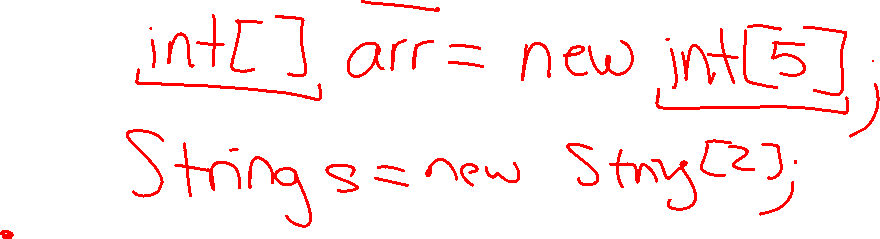 int[] arr = new int[5];
String s = new String[2];